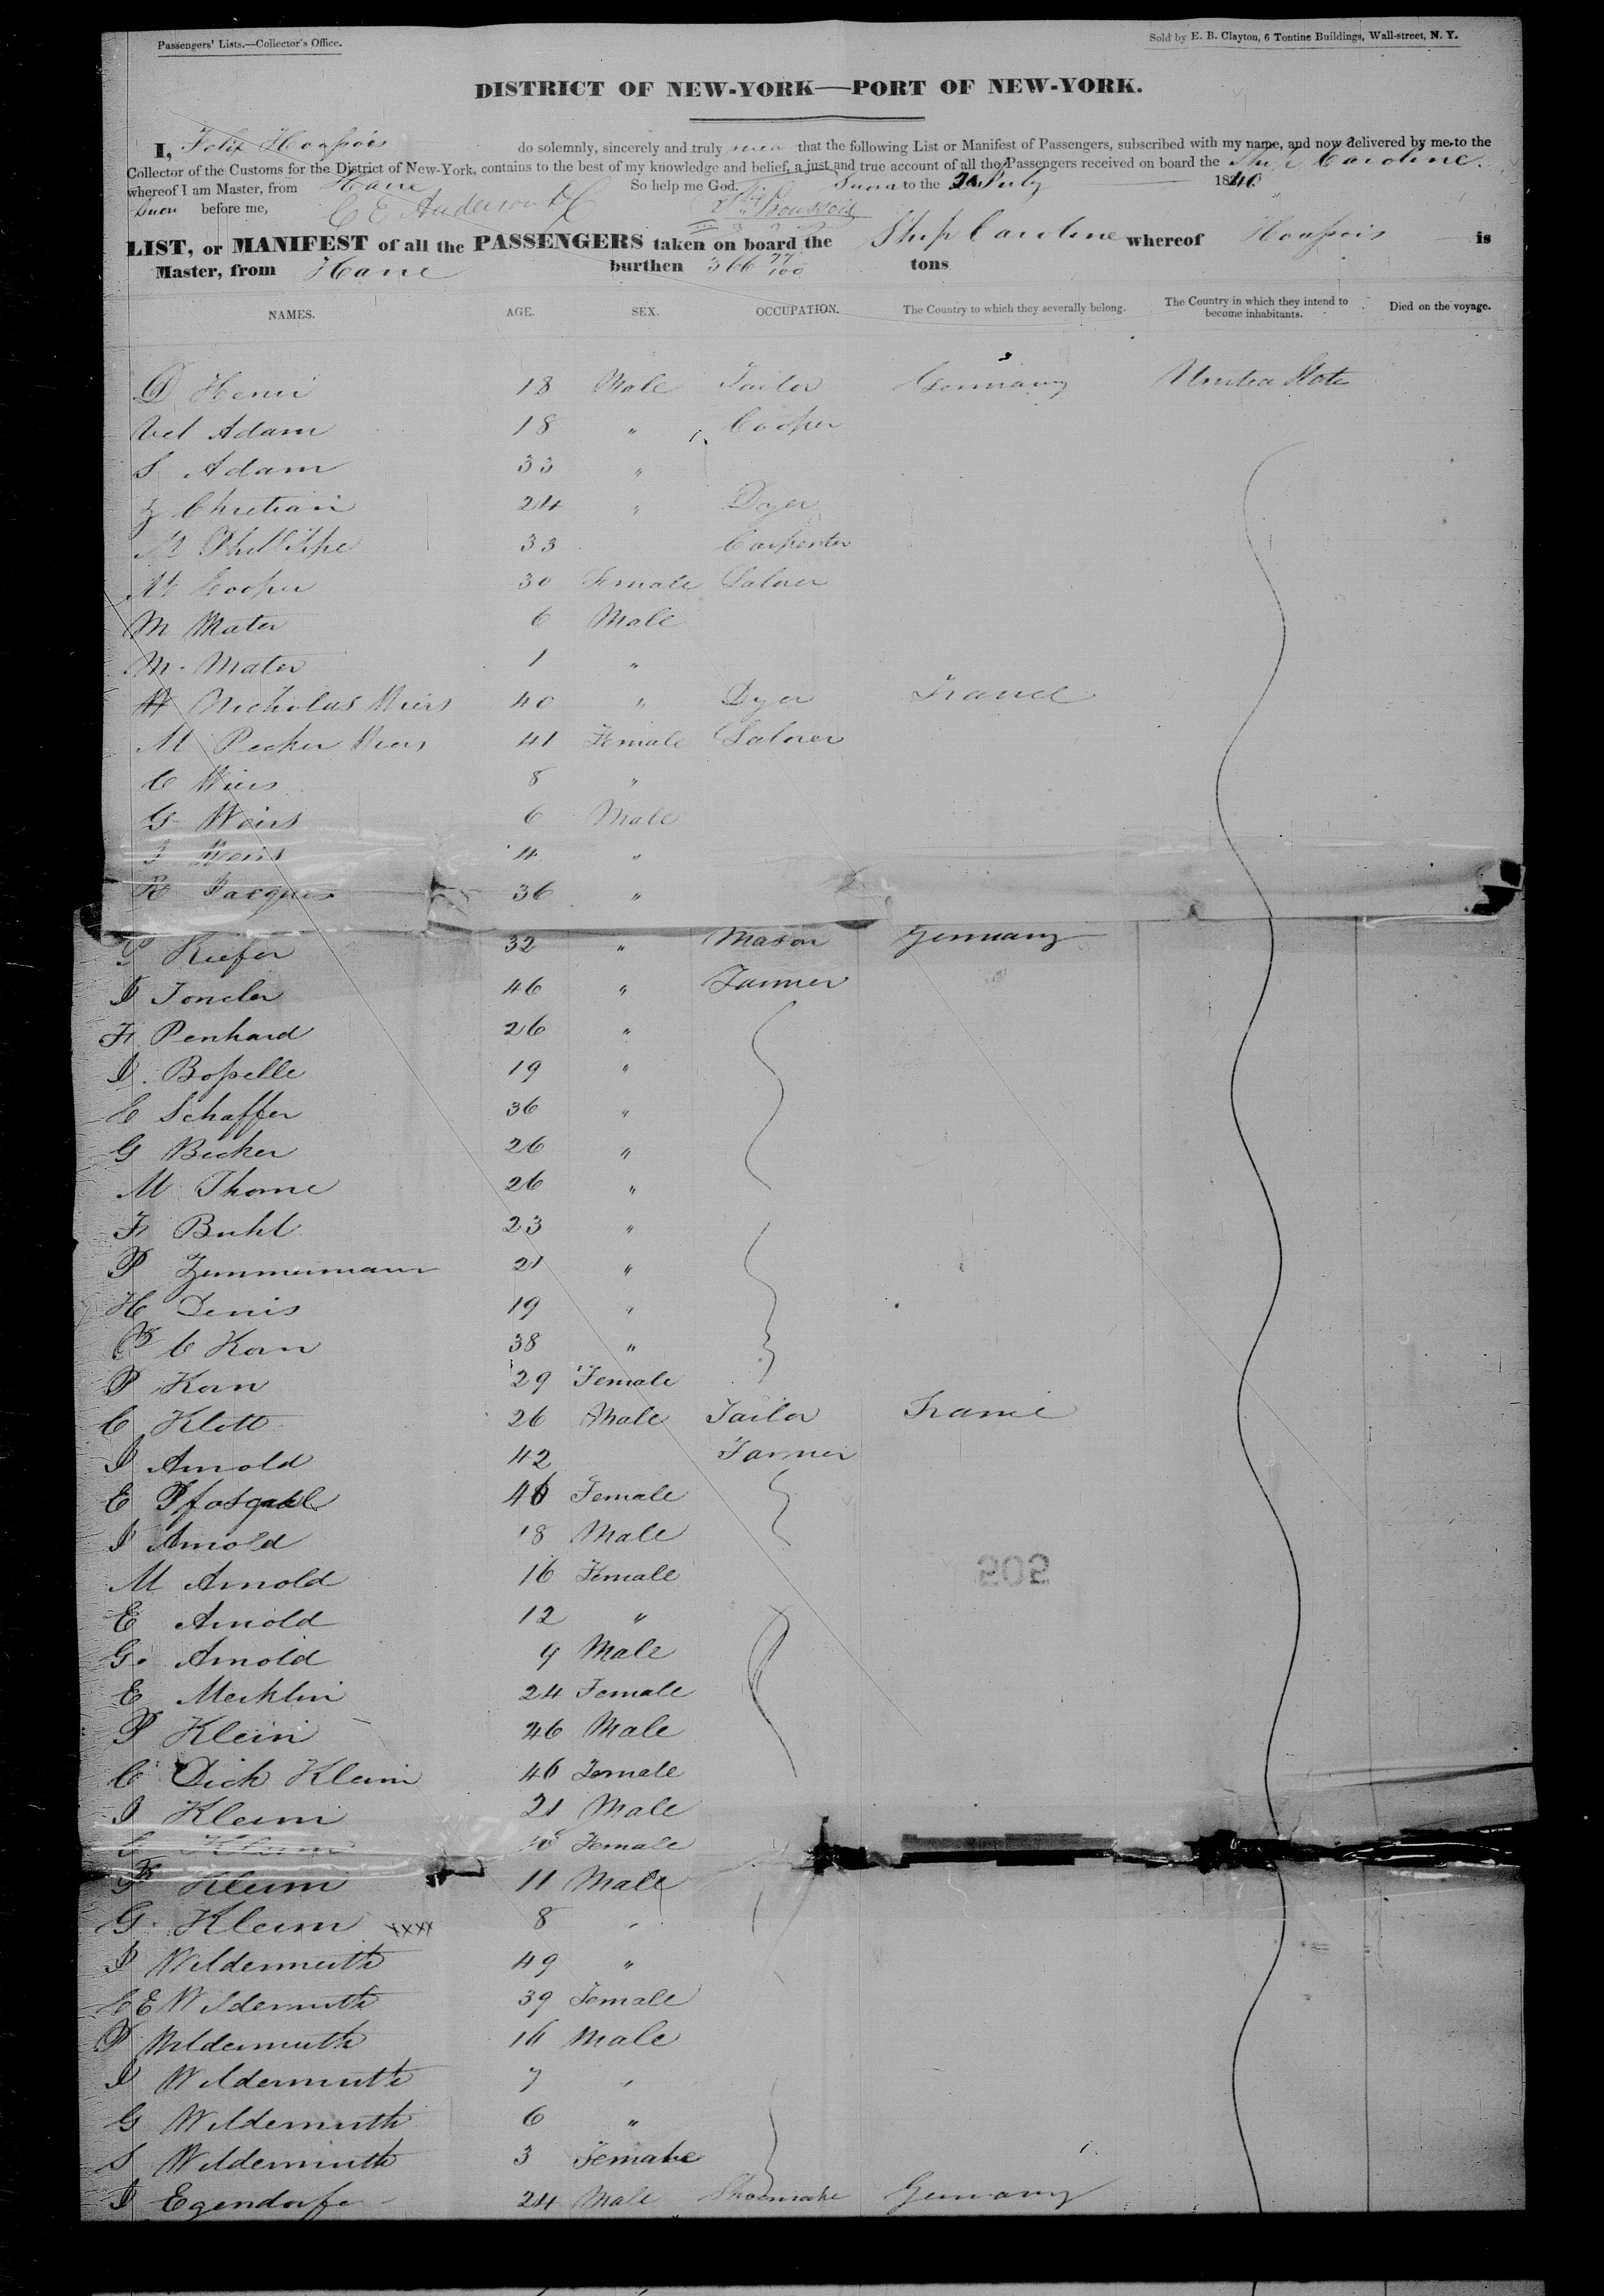 Passengers' Lists.—Collector's Office. Sold by E. B. Clayton, 6 Tontine Buildings, Wall-street, N. Y.
DISTRICT OF NEW-YORK—PORT OF NEW-YORK.
I, Felix do solemnly, sincerely and truly that the following List or Manifest of Passengers, subscribed with my name, and now delivered by me to the
Collector of the Customs for the District of New-York, contains to the best of my knowledge and belief, a just and true account of all the Passengers received on board the Ship Caroline.
whereof I am Master, from Havre So help me God. to the July 1840
before me, C E Anderson
LIST, or MANIFEST of all the PASSENGERS taken on board the Ship Caroline whereof is
Master, from Havre burthen 366 77/100 tons
NAMES. AGE. SEX. OCCUPATION. The Country to which they severally belong. The Country in which they intend to become inhabitants. Died on the voyage.
D Henri 18 Male Tailor Germany United State
Adam 18 " Cooper
S Adam 33 "
Chretien 24 " Dyer
M 33 Carpenter
30 Female
M Mater 6 Male
M. Mater 1 "
Nicholas 40 " Dyer France
M Pecker 41 Female
C 8 "
G Weirs 6 Male
J Weirs 4 "
R Jacques 36 "
Kiefer 32 " Mason Germany
J 46 " Farmer
Fr Penhard 26 "
J. 19 "
C Schaffer 36 "
G Becker 26 "
M Thome 26 "
Fr Buhl 23 "
P Zimmermann 21 "
H Denis 19 "
C Korn 38 "
P Korn 29 Female
C Klott 26 Male Tailor France
J Arnold 42 Farmer
E Female
J Arnold 18 Male
M Arnold 16 Female
E Arnold 12 "
G. Arnold 9 Male
E Mecklin 24 Female
P Klein 46 Male
C Dick Klein 46 Female
J Klein 21 Male
Klein Female
Klein 11 Male
G. Klein xxxx 8 "
J Wildermuth 49 "
C E Wildermuth 39 Female
P Wildermuth 16 Male
J Wildermuth 7 "
G Wildermuth 6 "
S Wildermuth 3 Female
J Egendorfe 24 Male Shoemake Germany